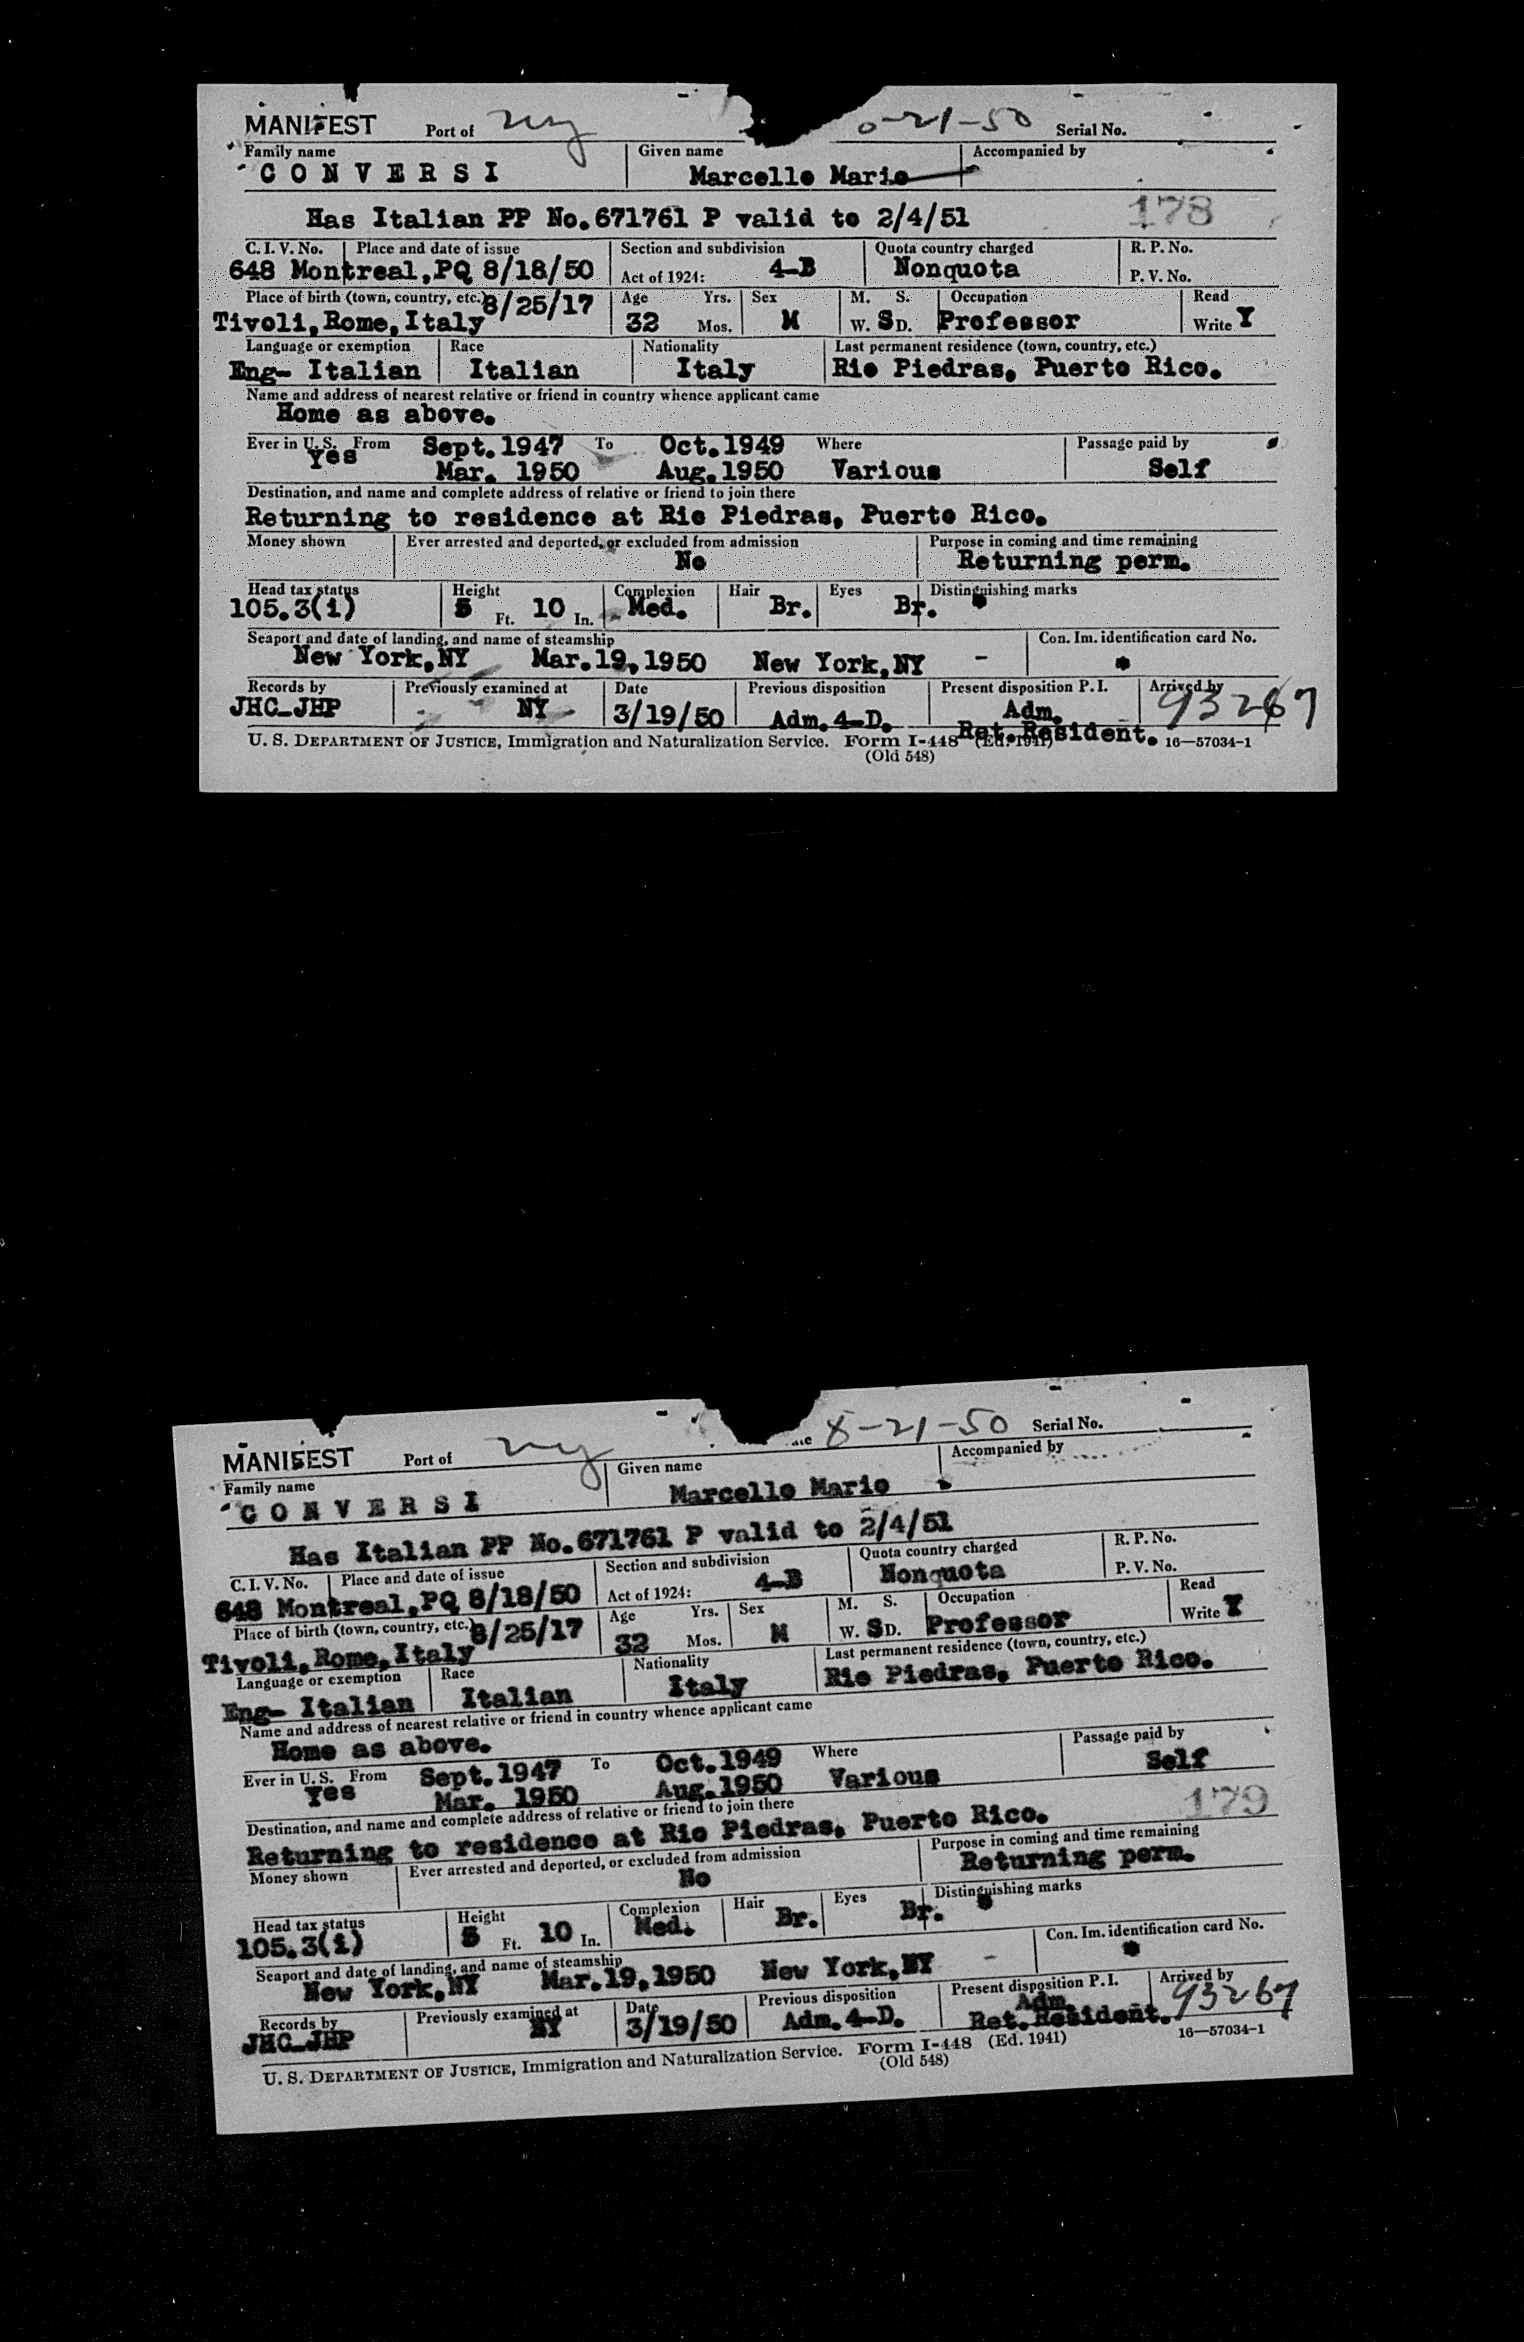 MANIFEST Port of ny 8-21-50 Serial No.
Family name Given name Accompanied by
CONVERSI Marcello Mario
Has Italian PP No.671761 P valid to 2/4/51 178
C. I. V. No. Place and date of issue Section and subdivision Quota country charged R. P. No.
648 Montreal,PQ 8/18/50 Act of 1924: 4-B Nonquota P. V. No.
Place of birth (town, country, etc.) 8/25/17 Age Yrs. Sex M. S. Occupation Read
Tivoli,Rome,Italy 32 Mos. M W. S D. Professor Write Y
Language or exemption Race Nationality Last permanent residence (town, country, etc.)
Eng- Italian Italian Italy Rio Piedras, Puerto Rico.
Name and address of nearest relative or friend in country whence applicant came
Home as above.
Ever in U. S. From Sept.1947 To Oct.1949 Where Passage paid by
Yes Mar. 1950 Aug.1950 Various Self
Destination, and name and complete address of relative or friend to join there
Returning to residence at Rio Piedras, Puerto Rico.
Money shown Ever arrested and deported, or excluded from admission Purpose in coming and time remaining
No Returning perm.
Head tax status Height Complexion Hair Eyes Distinguishing marks
105.3(i) 5 Ft. 10 In. Med. Br. Br.
Seaport and date of landing, and name of steamship Con. Im. identification card No.
New York,NY Mar.19,1950 New York,NY -
Records by Previously examined at Date Previous disposition Present disposition P. I. Arrived by
JHC-JHP NY 3/19/50 Adm.4-D. Adm. 93267
Ret.Resident.
U. S. DEPARTMENT OF JUSTICE, Immigration and Naturalization Service. Form I-448 (Ed. 1941) 16—57034-1
(Old 548)
MANIFEST Port of ny 8-21-50 Serial No.
Family name Given name Accompanied by
CONVERSI Marcello Mario
Has Italian PP No.671761 P valid to 2/4/51
C. I. V. No. Place and date of issue Section and subdivision Quota country charged R. P. No.
648 Montreal,PQ 8/18/50 Act of 1924: 4-B Nonquota P. V. No.
Place of birth (town, country, etc.) 8/25/17 Age Yrs. Sex M. S. Occupation Read
Tivoli,Rome,Italy 32 Mos. M W. S D. Professor Write Y
Language or exemption Race Nationality Last permanent residence (town, country, etc.)
Eng- Italian Italian Italy Rio Piedras, Puerto Rico.
Name and address of nearest relative or friend in country whence applicant came
Home as above.
Ever in U. S. From Sept.1947 To Oct.1949 Where Passage paid by
Yes Mar. 1950 Aug.1950 Various Self
Destination, and name and complete address of relative or friend to join there 179
Returning to residence at Rio Piedras, Puerto Rico.
Money shown Ever arrested and deported, or excluded from admission Purpose in coming and time remaining
No Returning perm.
Head tax status Height Complexion Hair Eyes Distinguishing marks
105.3(i) 5 Ft. 10 In. Med. Br. Br.
Seaport and date of landing, and name of steamship Con. Im. identification card No.
New York,NY Mar.19,1950 New York,NY -
Records by Previously examined at Date Previous disposition Present disposition P. I. Arrived by
JHC-JHP NY 3/19/50 Adm.4-D. Adm. 93267
Ret.Resident.
U. S. DEPARTMENT OF JUSTICE, Immigration and Naturalization Service. Form I-448 (Ed. 1941) 16—57034-1
(Old 548)